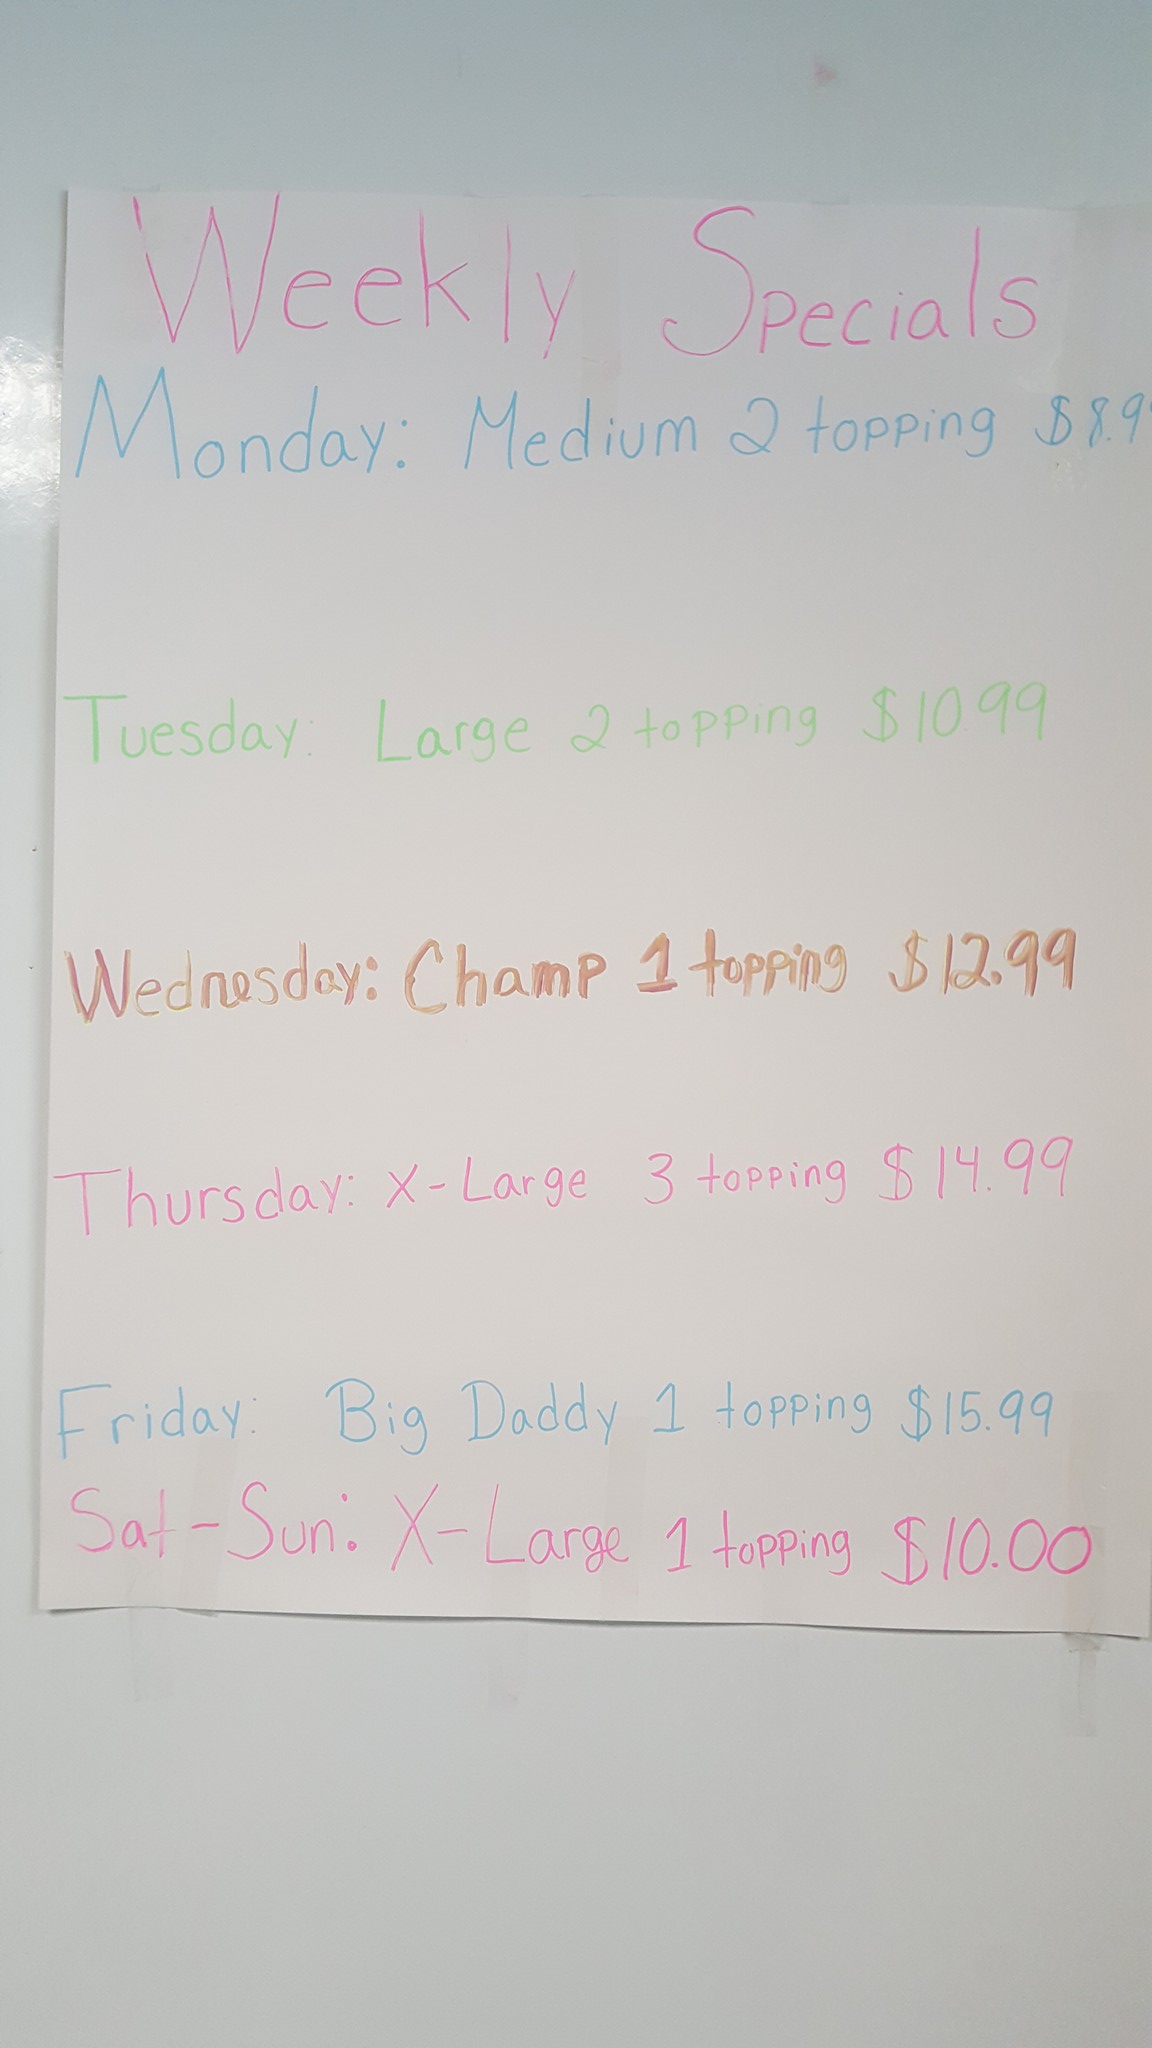 Weekly Specials
Monday: Medium 2 topping $8.9
Tuesday: Large 2 topping $10.99
Wednesday: Champ 1 topping $12.99
Thursday: X-Large 3 topping $14.99
Friday: Big Daddy 1 topping $15.99
Sat-Sun: X-Large 1 topping $10.00